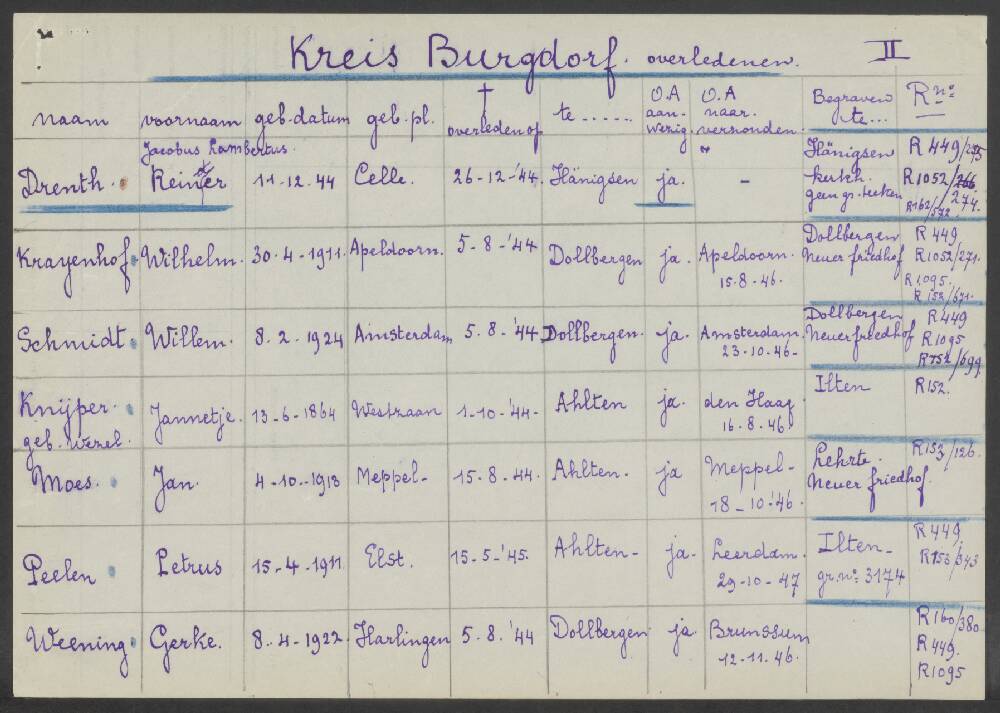 Kreis Burgdorf. overledenen. II
naam voornaam geb.datum geb.pl. † overleden op te ...... O.A aanwezig. O.A naar. verzonden. Begraven te... R no.
Jacobus Lambertus.
Drenth. Reinier 11-12.44 Celle. 26-12-'44. Hänigsen ja. - Hänigsen R 449/275
kerkh. R1052/266
geen gr. teeken 274.
R162/572
Krayenhof Wilhelm. 30.4-1911. Apeldoorn. 5-8-'44 Dollbergen ja. Apeldoorn. Dollbergen R 449
15.8-46. Neuer friedhof R1052/271.
R1095.
R 153/671.
Schmidt. Willem. 8.2-1924 Amsterdam 5.8.'44 Dollbergen. ja. Amsterdam. Dollbergen R449
23.10.46- Neuer friedhof R1095
R152/699
Knijper. Jannetje. 13-6-1864 Westzaan 1-10-'44- Ahlten ja. den Haag Ilten R152.
geb. Wezel. 16.8-46.
Moes. Jan. 4-10-1913 Meppel- 15.8-44. Ahlten. ja Meppel- Lehrte. R153/126.
18-10-'46. Neuer friedhof.
Peelen Petrus 15-4-1911 Elst. 15-5-'45. Ahlten- ja. Leerdam. Ilten- R449.
29-10-47 gr.no: 3174 R153/343
Weening. Gerke. 8.4-1922. Harlingen 5.8.'44 Dollbergen ja. Brunssum R160/380
12-11.46. R449.
R1095